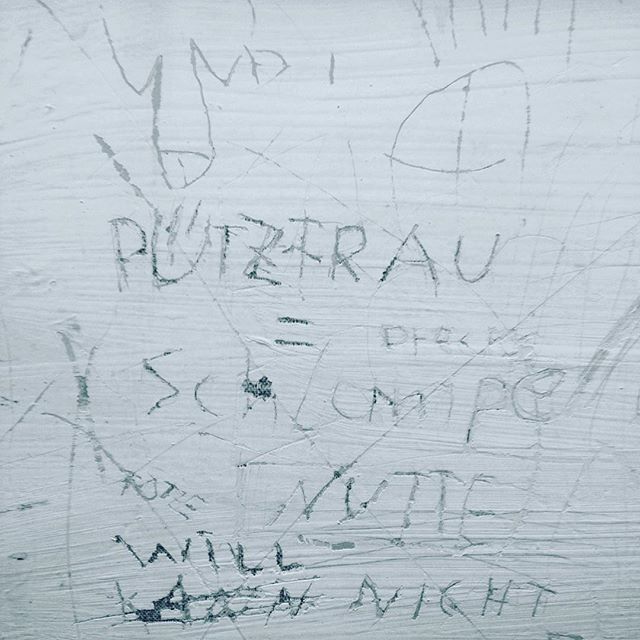 PUTZFRAU
=
SCHLAMPE
NUTTE
WILL
KANN NICHT